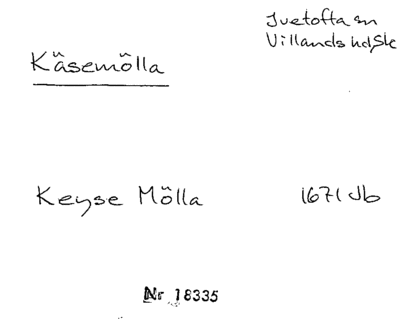 Ivetofta sn
Villands hd Sk
Käsemölla
Keyse Mölla 1671 Jb
Nr 18335